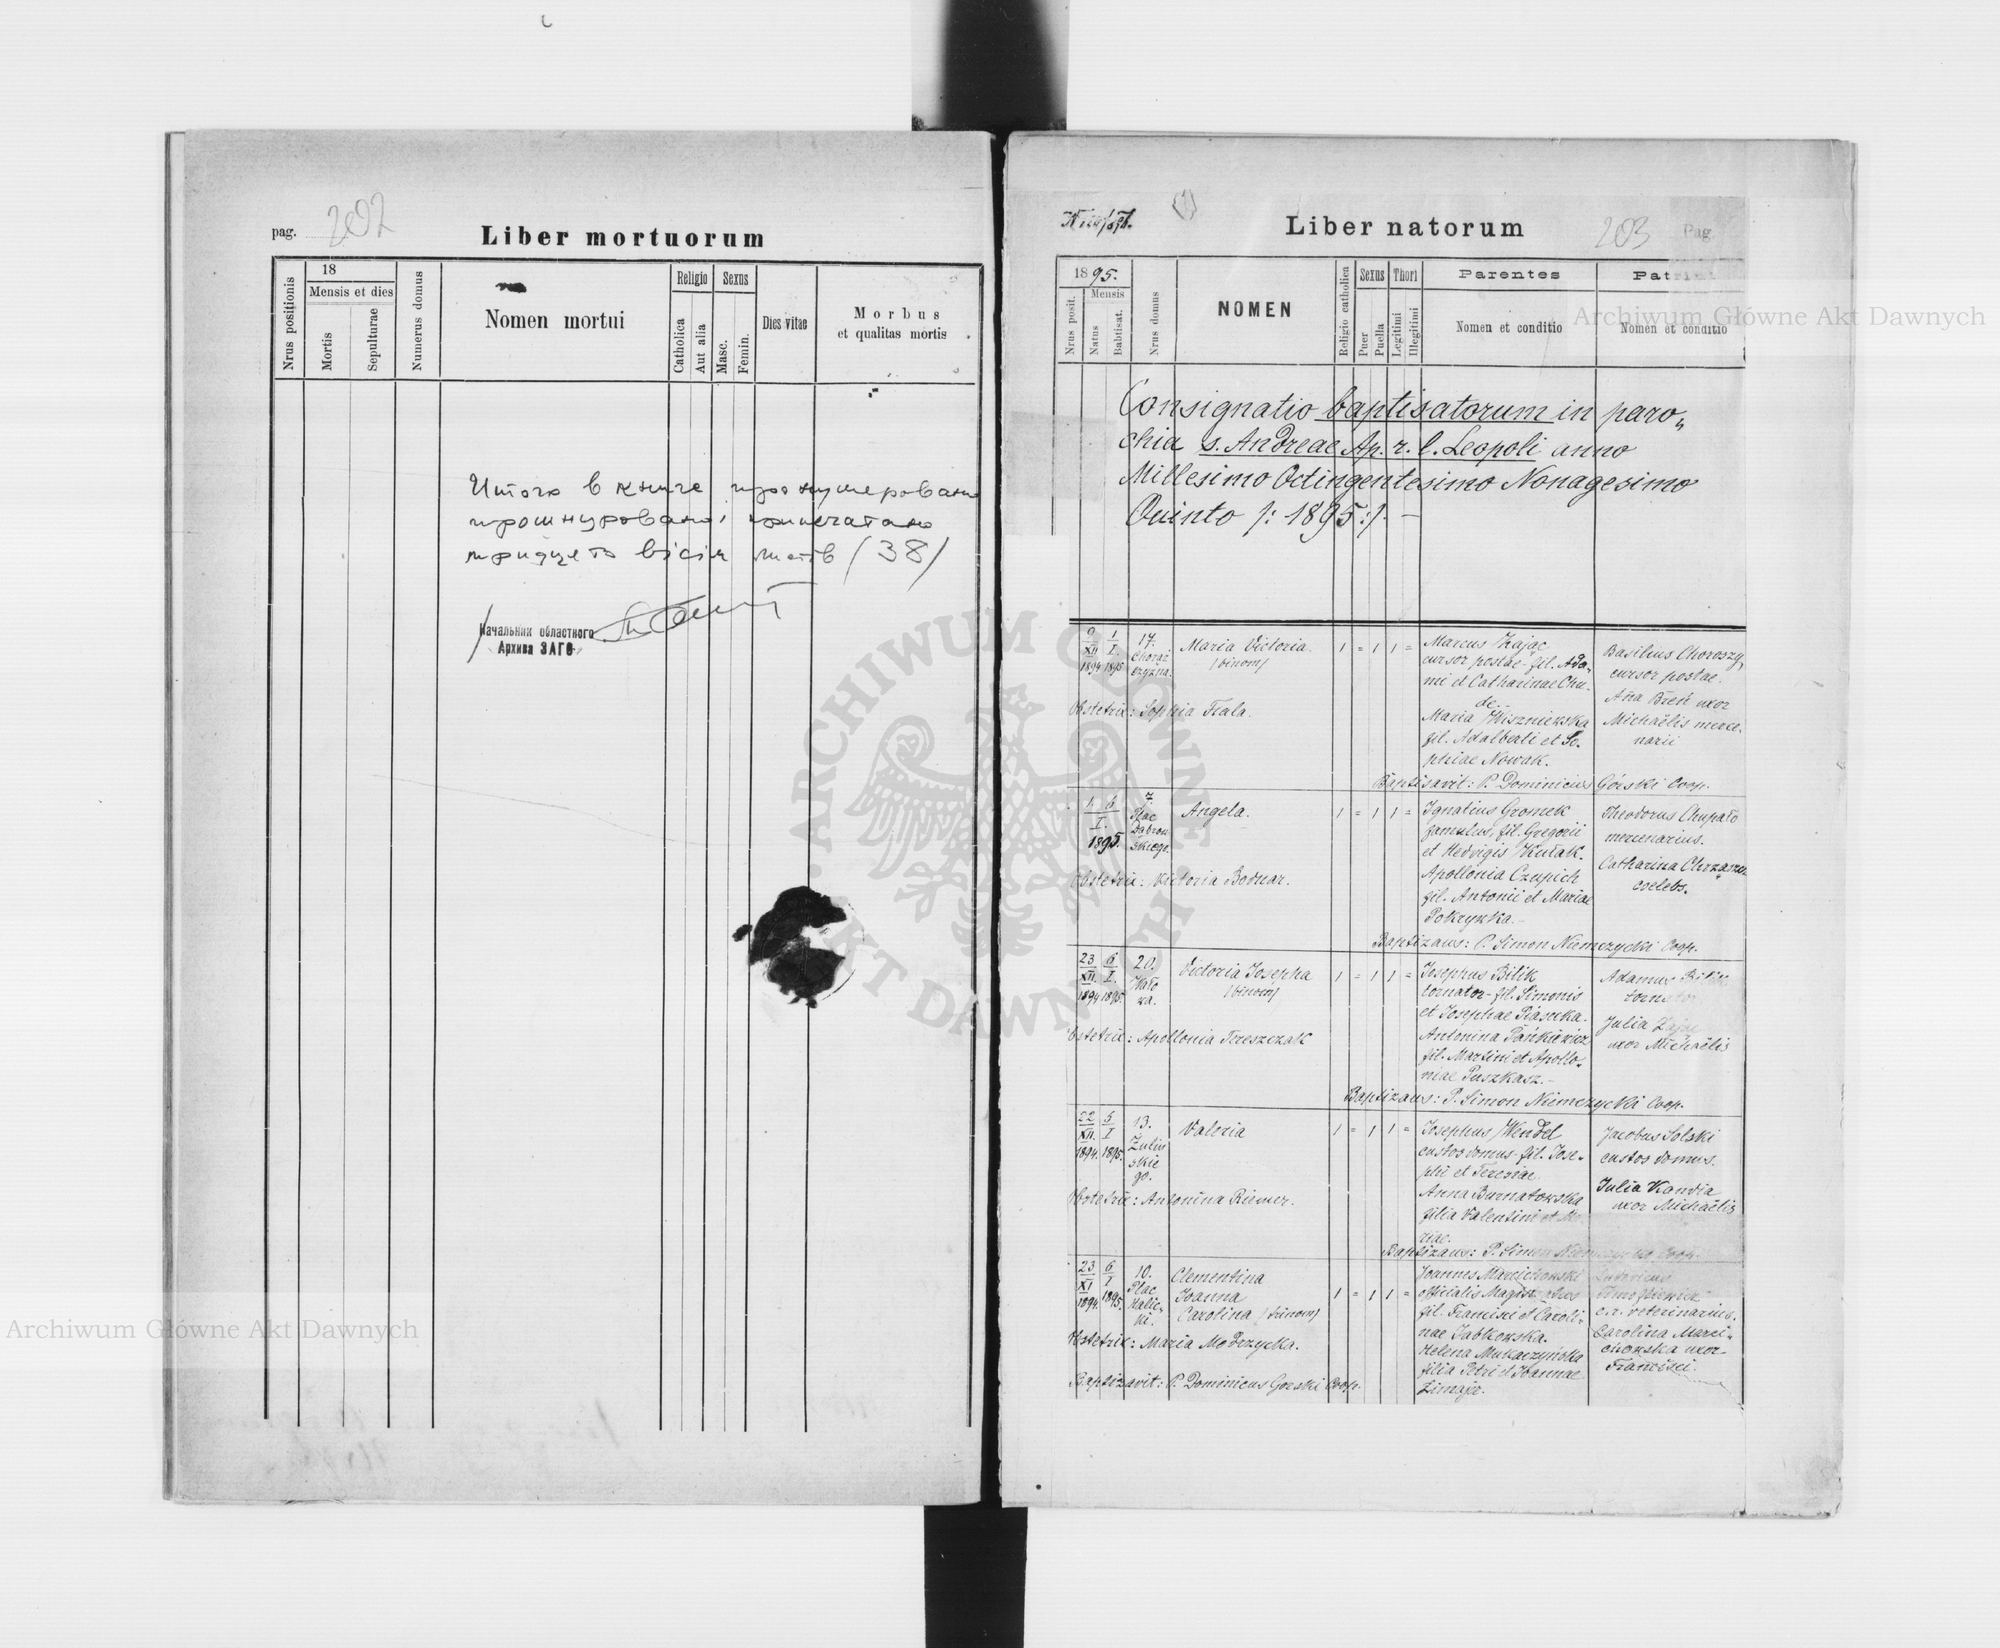 pag. 202
Liber mortuorum
Nrus positionis
18
Mensis et dies
Mortis
Sepulturae
Numerus domus
Nomen mortui
Religio
Catholica
Aut alia
Sexus
Masc.
Femin.
Dies vitae
Morbus
et qualitas mortis
Итого в книге
(38)
Начальник областного
Архива ЗАГС
Liber natorum
203
Pag.
1895.
Nrus posit.
Mensis
Natus
Babtisat.
Nrus domus
NOMEN
Religio catholica
Sexus
Puer
Puella
Thori
Legitimi
Illegitimi
Parentes
Nomen et conditio
Patrini
Nomen et conditio
Consignatio baptisatorum in paro„
chia s. Andreae Ap. r. l. Leopoli anno
Millesimo Octingentesimo Nonagesimo
Quinto /: 1895 :/. —
9 XII 1894
1 I. 1895
17. Chorąż czyzna.
Maria Victoria.
(binom)
1 = 1 1 =
Marcus Zając
cursor postae - fil. Ada-
mi et Catharinae Chu-
de.
Maria Wiszniewska
fil. Adalberti et So-
phiae Nowak.
Basilius Choroszy
cursor postae.
Anna Breń uxor
Michaëlis merce-
narii
Obstetrix: Sophia Fiala.
Baptisavit: P. Dominicus Górski Coop.
1. 6 I. 1895.
7. Plac Dąbrow skiego.
Angela.
1 = 1 1 =
Ignatius Gromek
famulus, fil. Gregorii
et Hedvigis Kułak.
Apollonia Czupich
fil. Antonii et Mariae
Pokrywka.
Theodorus Chupało
mercenarius.
Catharina
coelebs.
Obstetrix: Victoria Bodnar.
Baptizans: P. Simon Niemczycki Coop.
23 XII. 1894
6 I. 1895.
20.
Victoria Josepha
(binom)
1 = 1 1 =
Josephus Bilik
tornator - fil. Simonis
et Josephae Piasecka.
Antonina Pańkiewicz
fil. Martini et Apollo-
niae Puszkasz. -
Adamus Bilik
tornator
Julia
uxor Michaëlis
Obstetrix: Apollonia Tereszczak
Baptizans: P. Simon Niemczycki Coop.
22 XII. 1894.
6 I 1895.
13. Żuliń skie go.
Valeria
1 = 1 1 =
Josephus Wendel
custos domus - fil. Jose-
phi et Teresiae
Anna Burnatowska
filia Valentini et Ma-
riae.
Jacobus Solski
custos domus.
Julia Kandia
uxor Michaëlis
Obstetrix: Antonina Riemer.
Baptizans: P. Simon Niemczycki Coop.
23 XI 1894.
6 I 1895.
10. Plac Halic- ki.
Clementina
Joanna
Carolina (trinom)
1 = 1 1 =
Joannes Marcichowski
officialis
fil. Francisci et Caroli-
nae Jabłkowska.
Helena Mukaczyńska
filia Petri et Joannae
Zimajer.
Ludovicus
Timoftiewicz
c.r. veterinarius.
Carolina Marci-
chowska uxor
Francisci.
Obstetrix: Maria Modrzycka.
Baptizavit: P. Dominicus Gorski Coop.
Archiwum Główne Akt Dawnych
Archiwum Główne Akt Dawnych
ARCHIWUM GŁÓWNE AKT DAWNYCH